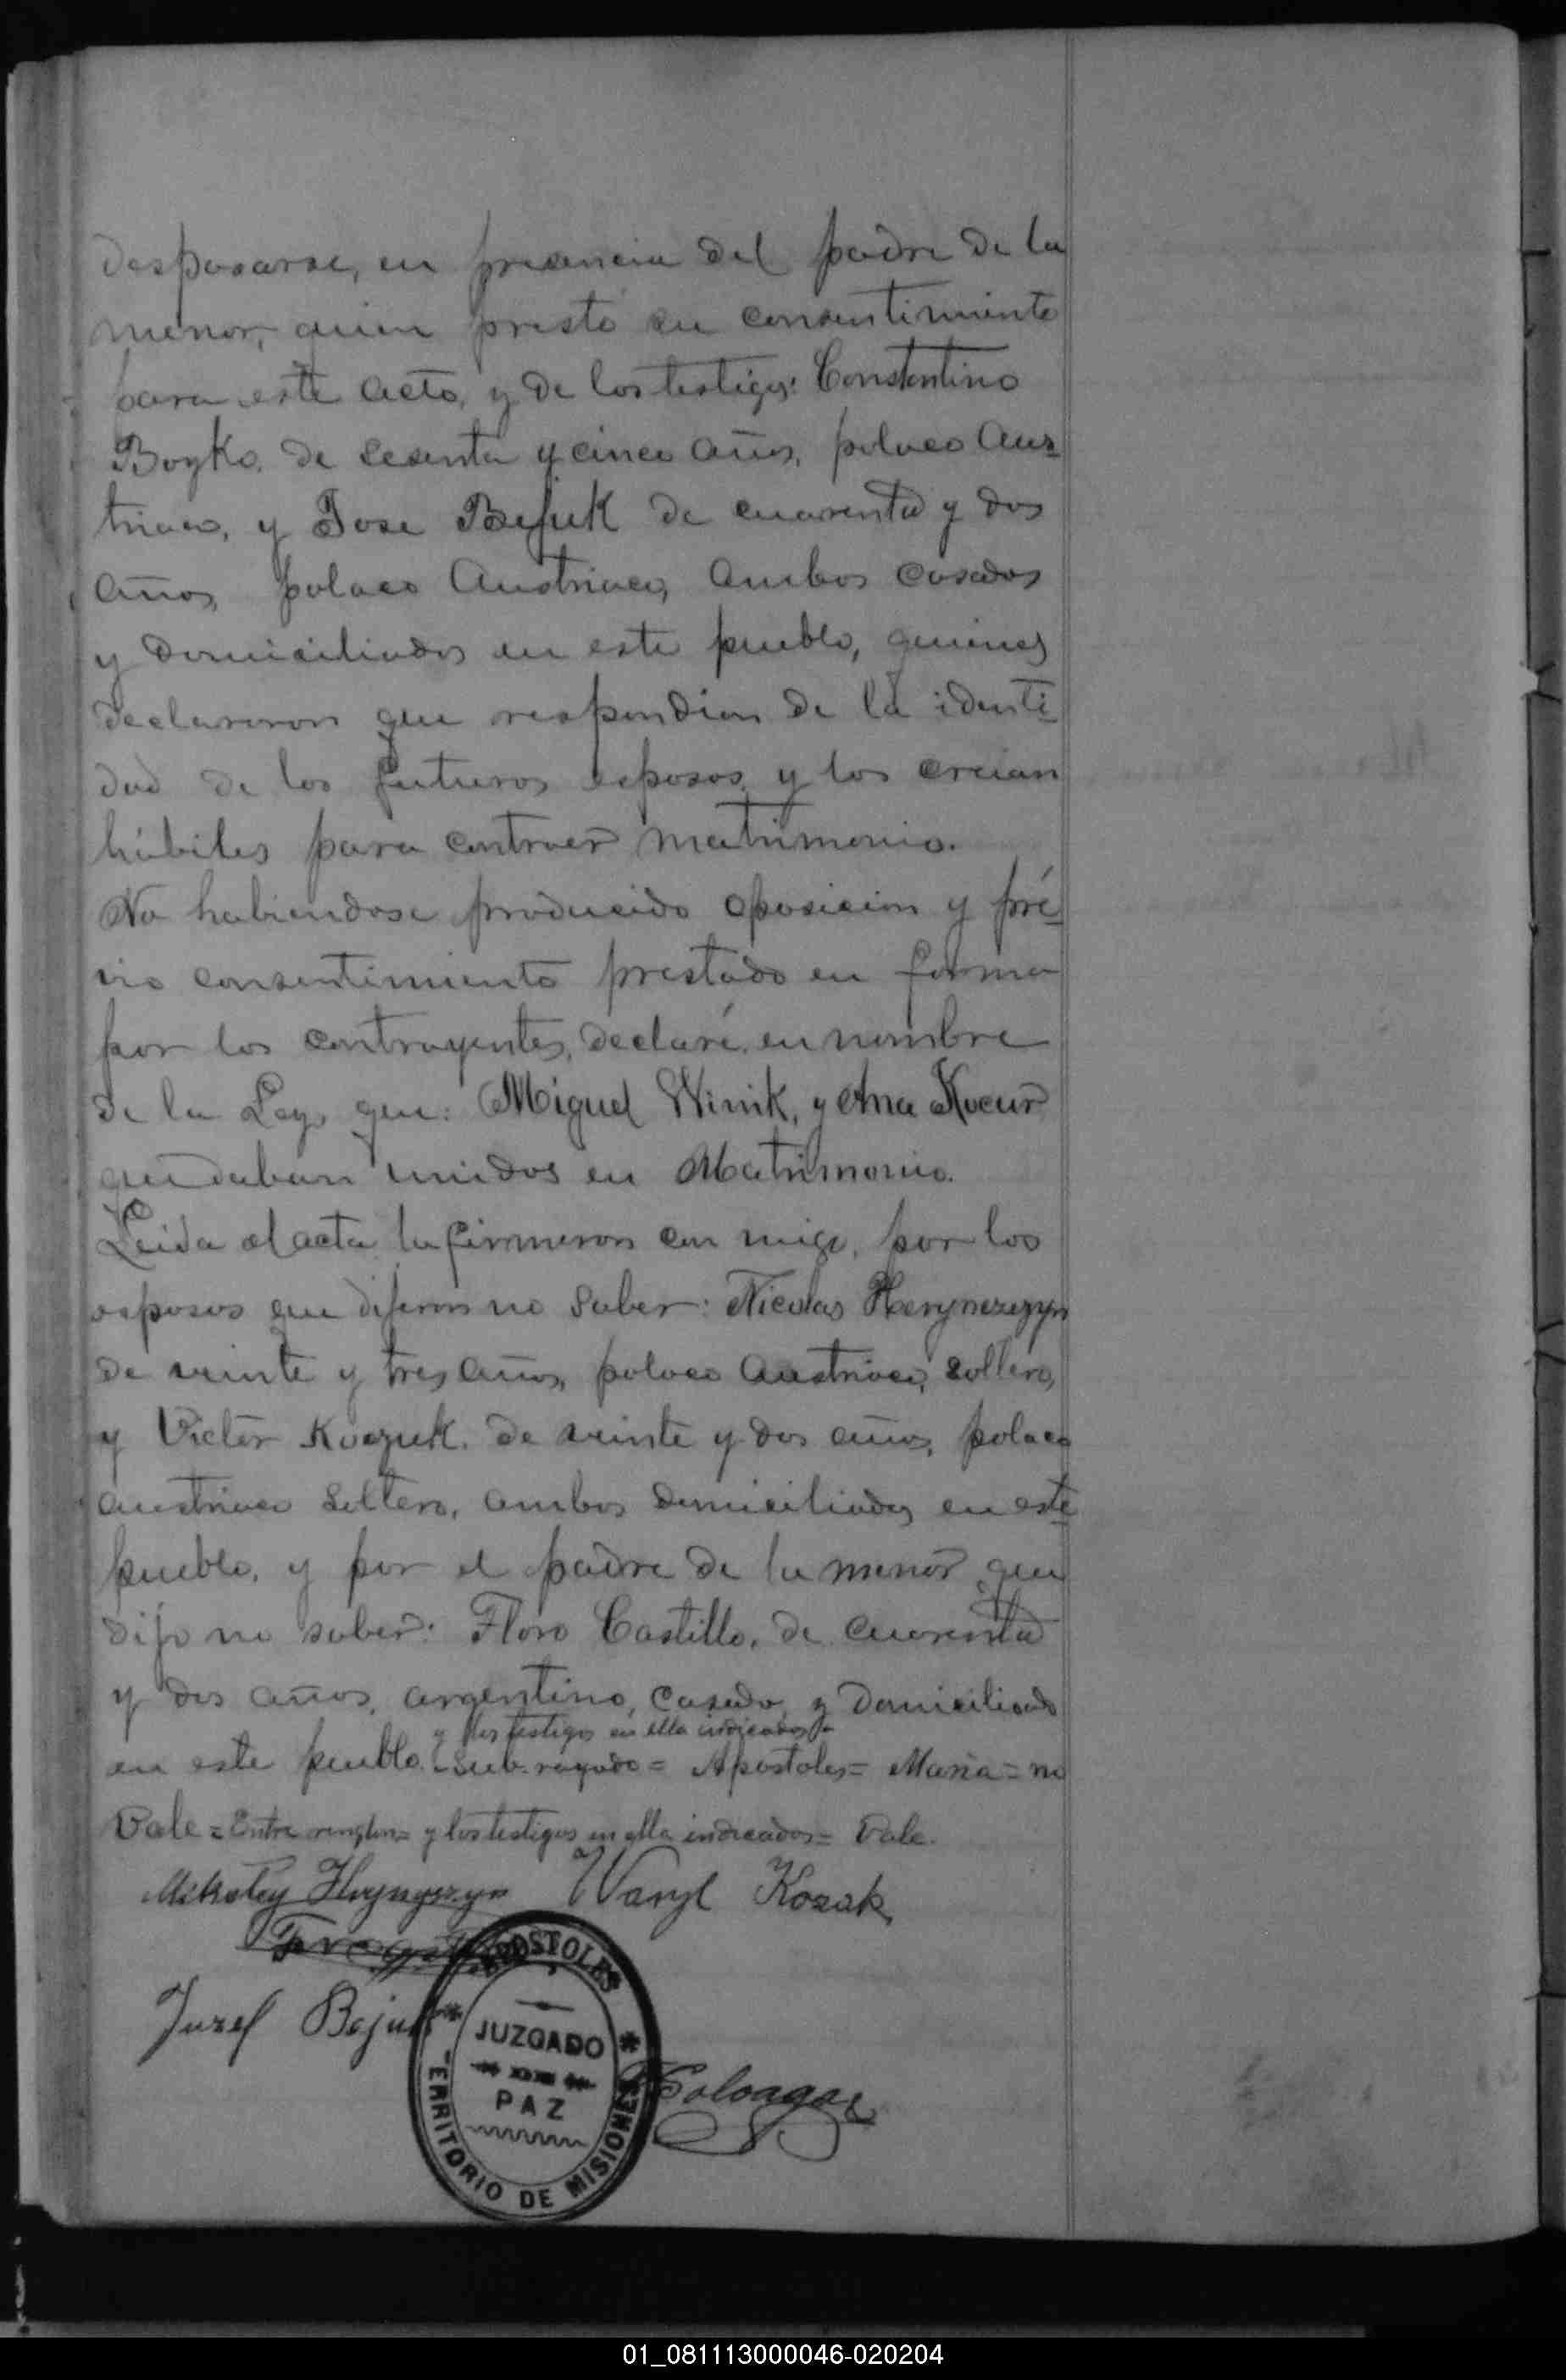 desposarse, en presencia del padre de la
menor, quien prestó su consentimiento
para este acto, y de los testigos: Constantino
Boyko, de sesenta y cinco años, polaco Aus-
triaco, y Jose Bejuk de cuarenta y dos
años, polaco Austriaco, ambos casados
y domiciliados en este pueblo, quienes
declararon que respondian de la identi-
dad de los futuros esposos y los creian
hábiles para contraer matrimonio.
No habiendose producido oposicion y pré-
vio consentimiento prestado en forma
por los contrayentes, declaré, en nombre
de la Ley, que: Miguel Winik, y Ana Kocur
quedaban unidos en Matrimonio.
Leida el acta la firmaron con migo, por los
esposos que dijeron no saber: Nicolas
de veinte y tres años, polaco Austriaco, soltero,
y Victor Koczuk, de veinte y dos años, polaco
austriaco soltero, ambos domiciliados en este
pueblo, y por el padre de la menor que
dijo no saber: Floro Castillo, de cuarenta
y dos años, argentino, casado, y domiciliado
y los testigos en ella indicados
en este pueblo. Sub-rayado = Apostoles = Maria = no
Vale = Entre renglon = y los testigos en ella indicados = Vale.
Wasyl Kozak
Juzef Bejuk
APOSTOLES
JUZGADO
PAZ
TERRITORIO DE MISIONES
01_081113000046-020204